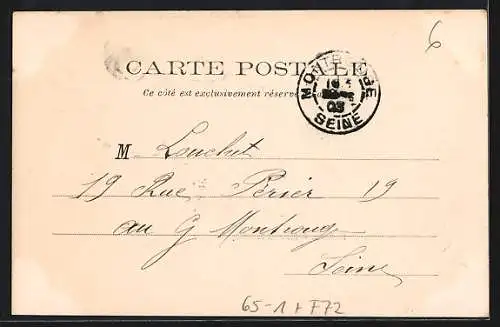 6
CARTE POSTALE
Ce côté est exclusivement réservé
MONTROUGE
SEINE
03
M Louchet
19 Rue Périer 19
au G Montrouge
Seine
65-1 + F72